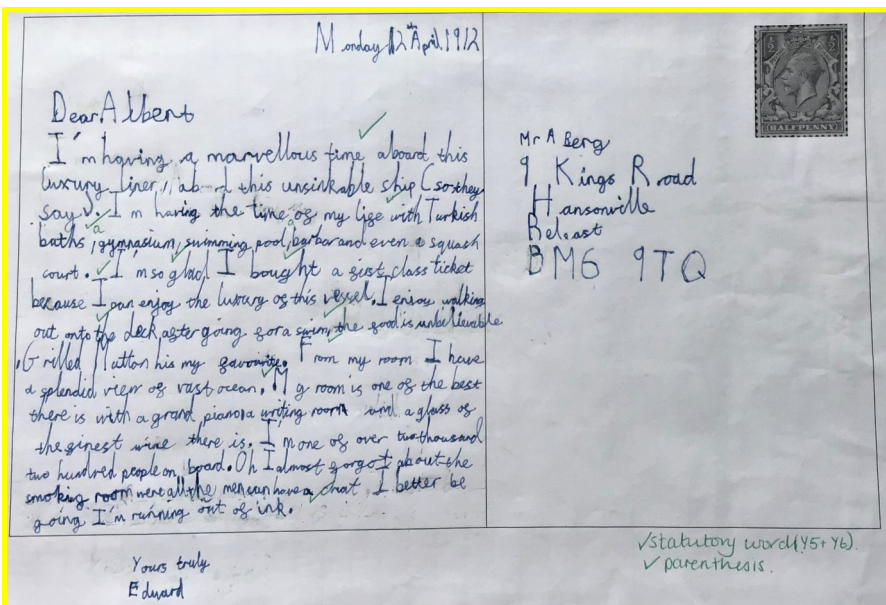 Monday 12th April 1912
Dear Albert
I'm having a marvellous time aboard this
luxury liner, aboard this unsinkable ship (so they
say). I'm having the time of my life with Turkish
baths, a gymnasium, swimming pool, a barbar and even a squash
court. I'm so glad I bought a first class ticket
because I can enjoy the luxury of this vessel. I enjoy walking
out onto the deck after going for a swim, the food is unbelievable
. Grilled Mutton his my favourite. From my room I have
a splendid view of vast ocean. My room is one of the best
there is with a grand piano, a writing room and a glass of
the finest wine there is. I'm one of over two thousand
two hundred people on board. Oh I almost forgot about the
smoking room were all the men can have a chat I better be
going I'm running out of ink.
Yours truly
Edward
HALFPENNY
Mr A Berg
9 Kings Road
Hansonville
Belfast
BM6 9TQ
✓statutory word (Y5+Y6).
✓parenthesis.